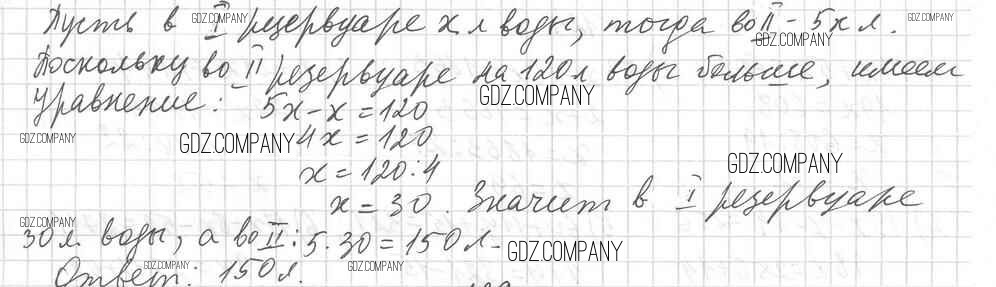 Пусть в I резервуаре x л воды, тогда во II - 5x л.
Поскольку во II резервуаре на 120 л воды больше, имеем
уравнение: 5x - x = 120
4x = 120
x = 120 : 4
x = 30. Значит в I резервуаре
30 л. воды, а во II: 5 · 30 = 150 л.
Ответ: 150 л.
GDZ.COMPANY
GDZ.COMPANY
GDZ.COMPANY
GDZ.COMPANY
GDZ.COMPANY
GDZ.COMPANY
GDZ.COMPANY
GDZ.COMPANY
GDZ.COMPANY
GDZ.COMPANY
GDZ.COMPANY